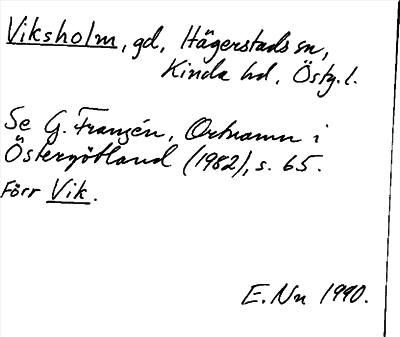 Viksholm, gd, Hägerstads sn,
Kinda hd, Östg.l.
Se G. Franzén, Ortnamn i
Östergötland (1982), s. 65.
Förr Vik.
E. Nn 1990.